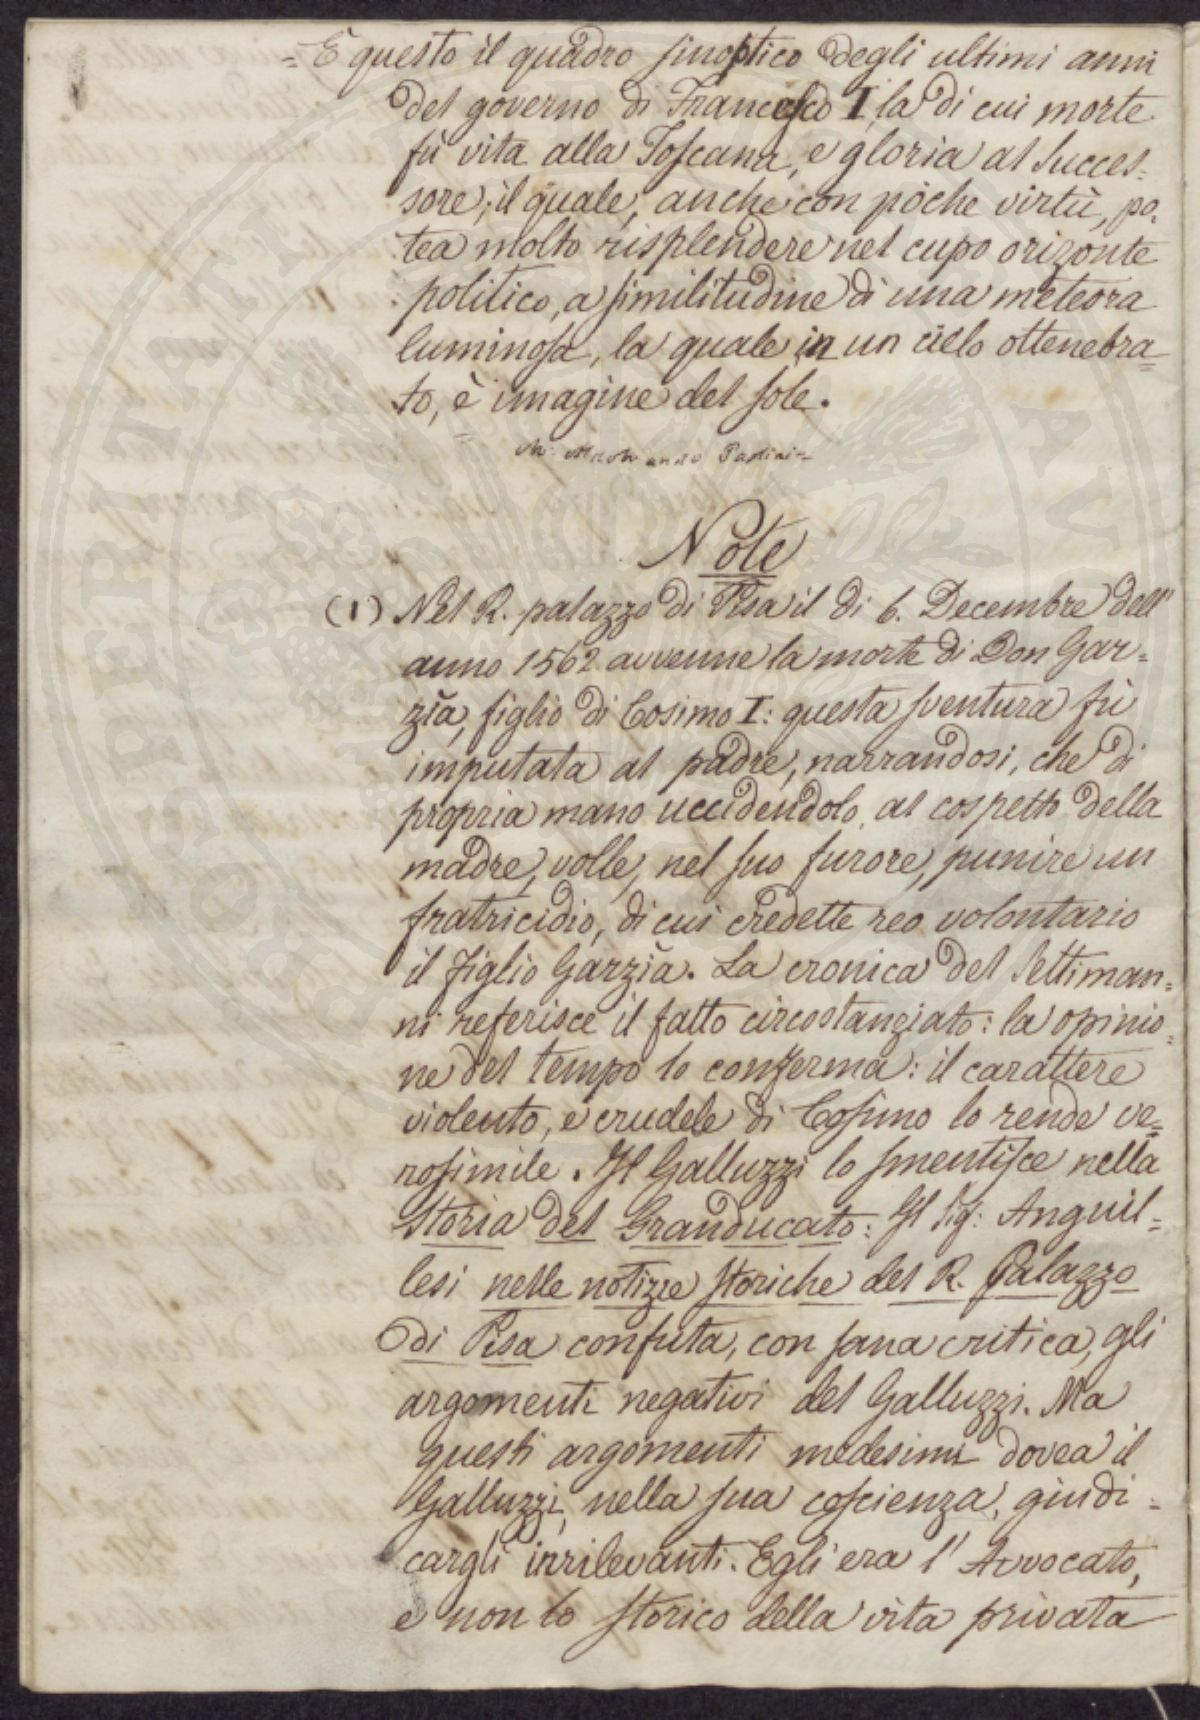 =È questo il quadro sinoptico degli ultimi anni
del governo di Francesco I, la di cui morte
fù vita alla Toscana, e gloria al Succes=
sore; il quale, anche con pòche virtù, po=
tea molto risplendere nel cupo orizonte
politico, a similitudine di una meteora
luminosa, la quale in un cielo ottenebra=
to, è imagine del sole.
Note
(1) Nel R. palazzo di Pisa il di 6. Decembre dell'
anno 1562 avvenne la morte di Don Gar=
zìa, figlio di Cosimo I: questa sventura fù
imputata al padre, narrandosi, che di
propria mano uccidendolo, al cospetto della
madre, volle, nel suo furore, punire un
fratricidio, di cui credette reo volontario
il figlio Garzìa. La cronica del Settiman=
ni referisce il fatto circostanziato: la opinio=
ne del tempo lo conferma: il carattere
violento, e crudele di Cosimo lo rende ve=
rosimile. Il Galluzzi lo smentisce nella
Storia del Granducato: Il Sig: Anguil=
lesi nelle notizie storiche del R. Palazzo
di Pisa confuta, con sana critica, gli
argomenti negativi del Galluzzi. Ma
questi argomenti medesimi dovea il
Galluzzi, nella sua coscienza, giudi=
cargli irrilevanti. Egli era l' Avvocato,
e non lo storico della vita privata
PROSPERITATI AVG